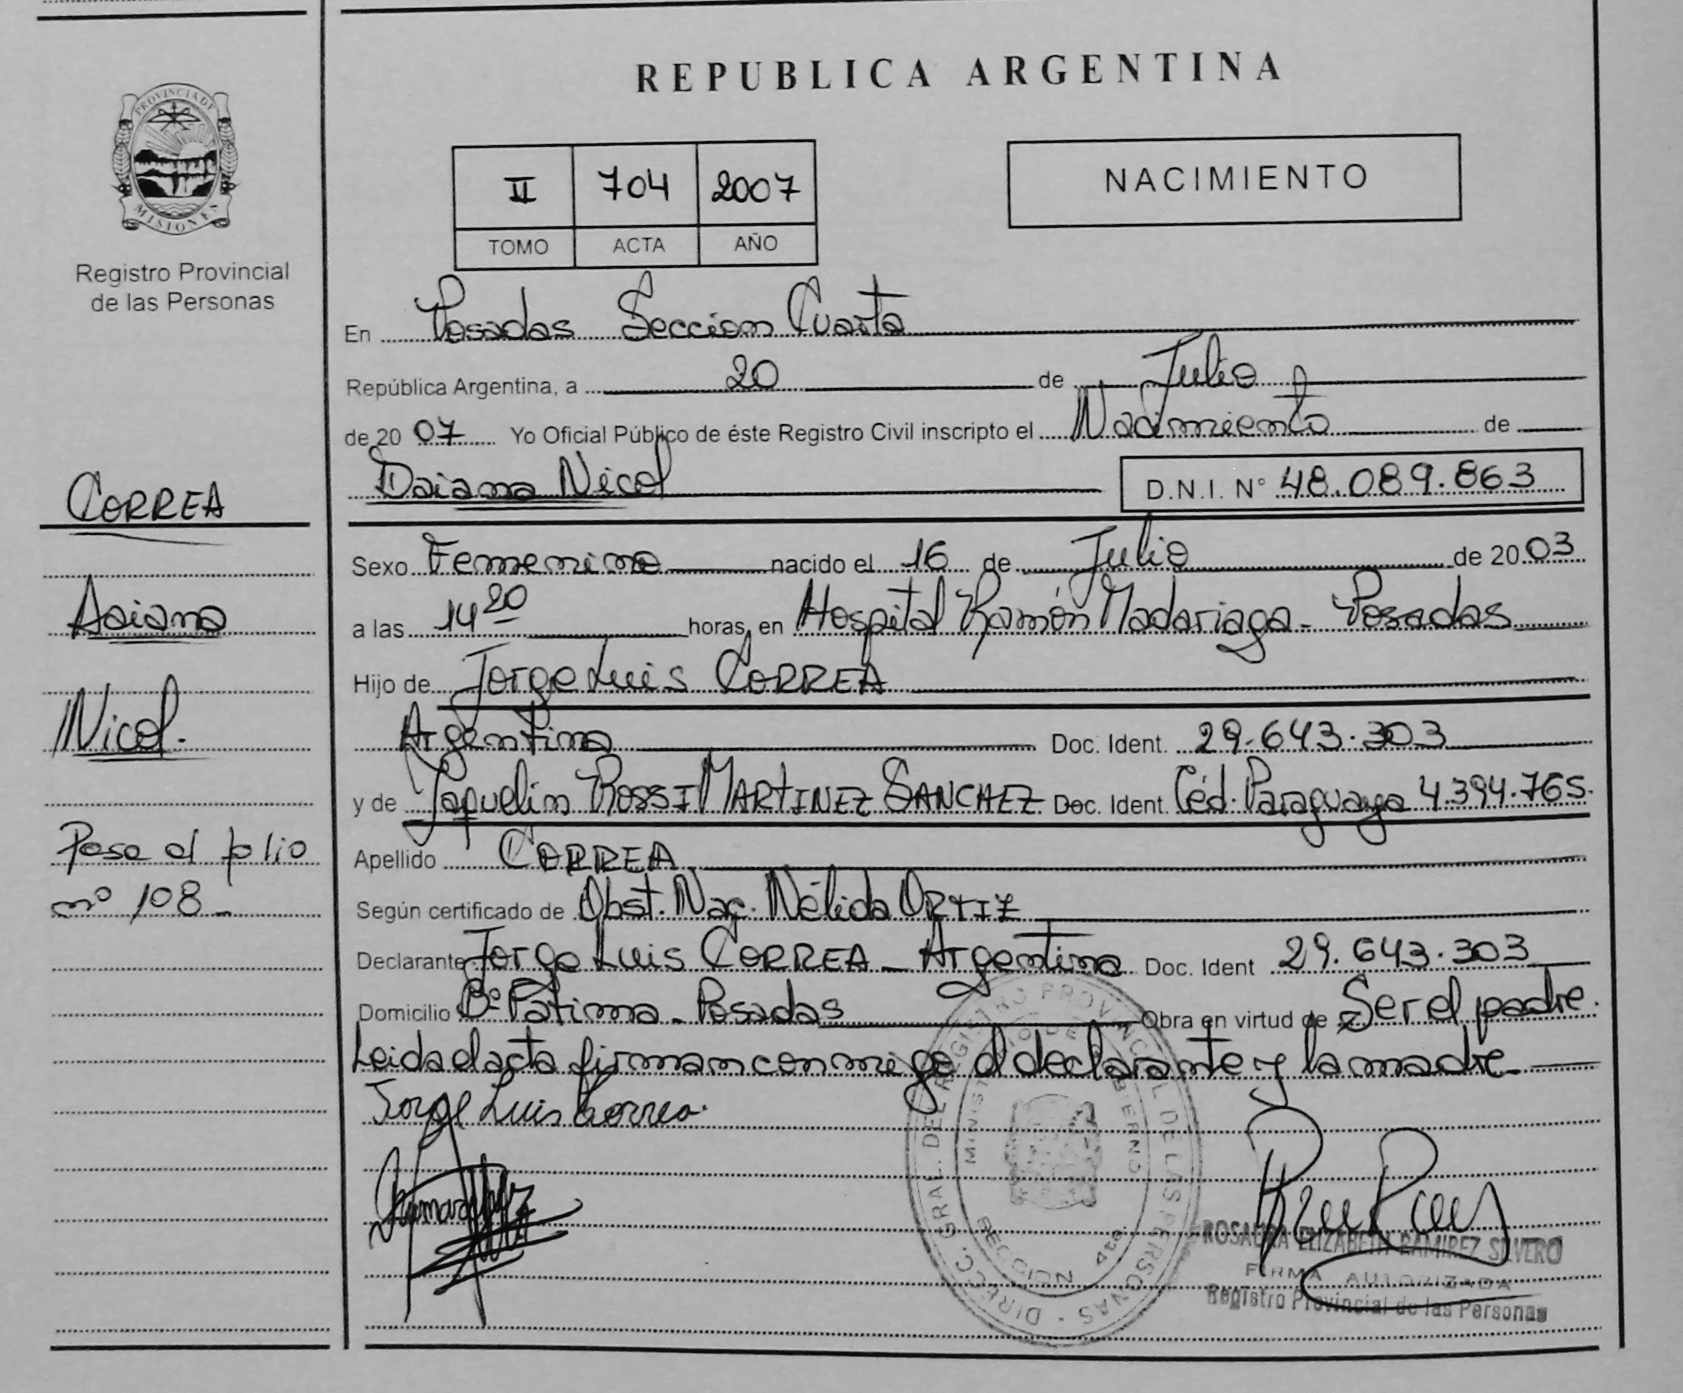 REPUBLICA ARGENTINA
PROVINCIA DE
MISIONES
Registro Provincial
de las Personas
II 704 2007
TOMO ACTA AÑO
NACIMIENTO
En Posadas Seccion Cuarta
República Argentina, a 20 de Julio
de 20 07 Yo Oficial Público de éste Registro Civil inscripto el Nacimiento de
Daiana Nicol D.N.I. N° 48.089.863
CORREA
Daiana
Nicol.
Pasa al folio
nº 108
Sexo Femenino nacido el 16 de Julio de 20 03
a las 14 20 horas, en Hospital Ramón Madariaga - Posadas
Hijo de Jorge Luis CORREA
Argentino Doc. Ident. 29.643.303
y de Jaquelin ROSSI MARTINEZ SANCHEZ Doc. Ident. Céd. Paraguaya 4.394.765.
Apellido CORREA
Según certificado de Obst. Nac. Nélida ORTIZ
Declarante Jorge Luis CORREA - Argentino Doc. Ident 29.643.303
Domicilio Bº Fátima - Posadas Obra en virtud de Ser el padre.
Leida el acta firman conmigo el declarante y la madre
Jorge Luis Correa.
DIRECC. GRAL. DEL REGISTRO PROVINCIAL DE LAS PERSONAS
SECCION 4ta
ROSAURA ELIZABETH RAMIREZ SILVERO
FIRMA AUTORIZADA
Registro Provincial de las Personas